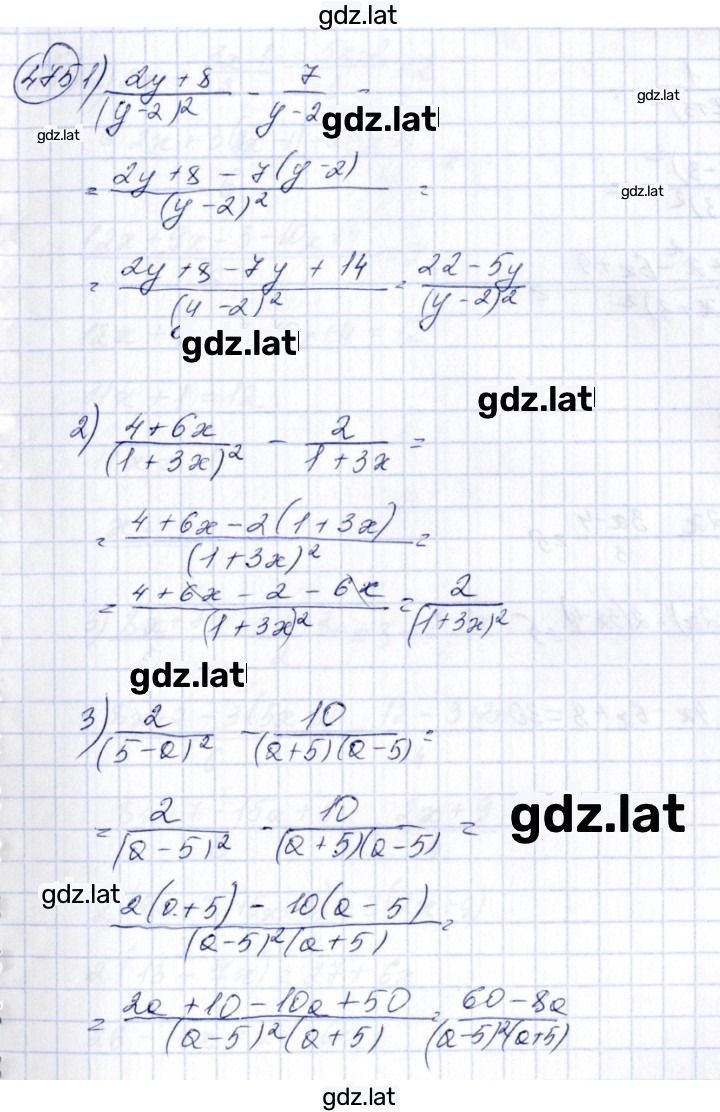 gdz.lat
475 1) (2y + 8)/(y - 2)² - 7/(y - 2) =
gdz.lat
gdz.lat
gdz.lat
= (2y + 8 - 7(y - 2))/(y - 2)² =
gdz.lat
= (2y + 8 - 7y + 14)/(y - 2)² = (22 - 5y)/(y - 2)²
gdz.lat
gdz.lat
2) (4 + 6x)/(1 + 3x)² - 2/(1 + 3x) =
= (4 + 6x - 2(1 + 3x))/(1 + 3x)² =
= (4 + 6x - 2 - 6x)/(1 + 3x)² = 2/(1 + 3x)²
gdz.lat
3) 2/(5 - a)² - 10/((a + 5)(a - 5)) =
= 2/(a - 5)² - 10/((a + 5)(a - 5)) =
gdz.lat
gdz.lat
(2(a + 5) - 10(a - 5))/((a - 5)²(a + 5)) =
= (2a + 10 - 10a + 50)/((a - 5)²(a + 5)) = (60 - 8a)/((a - 5)²(a + 5))
gdz.lat